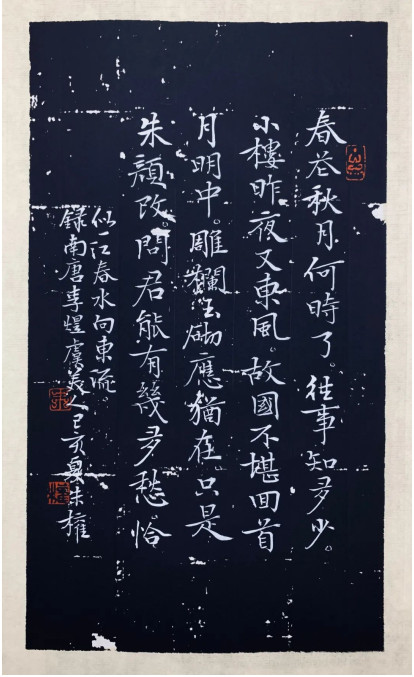 春花秋月何時了。往事知多少。
小樓昨夜又東風。故國不堪回首
月明中。雕欄玉砌應猶在。只是
朱顏改。問君能有幾多愁。恰
似一江春水向東流。
錄南唐李煜虞美人己亥夏朱